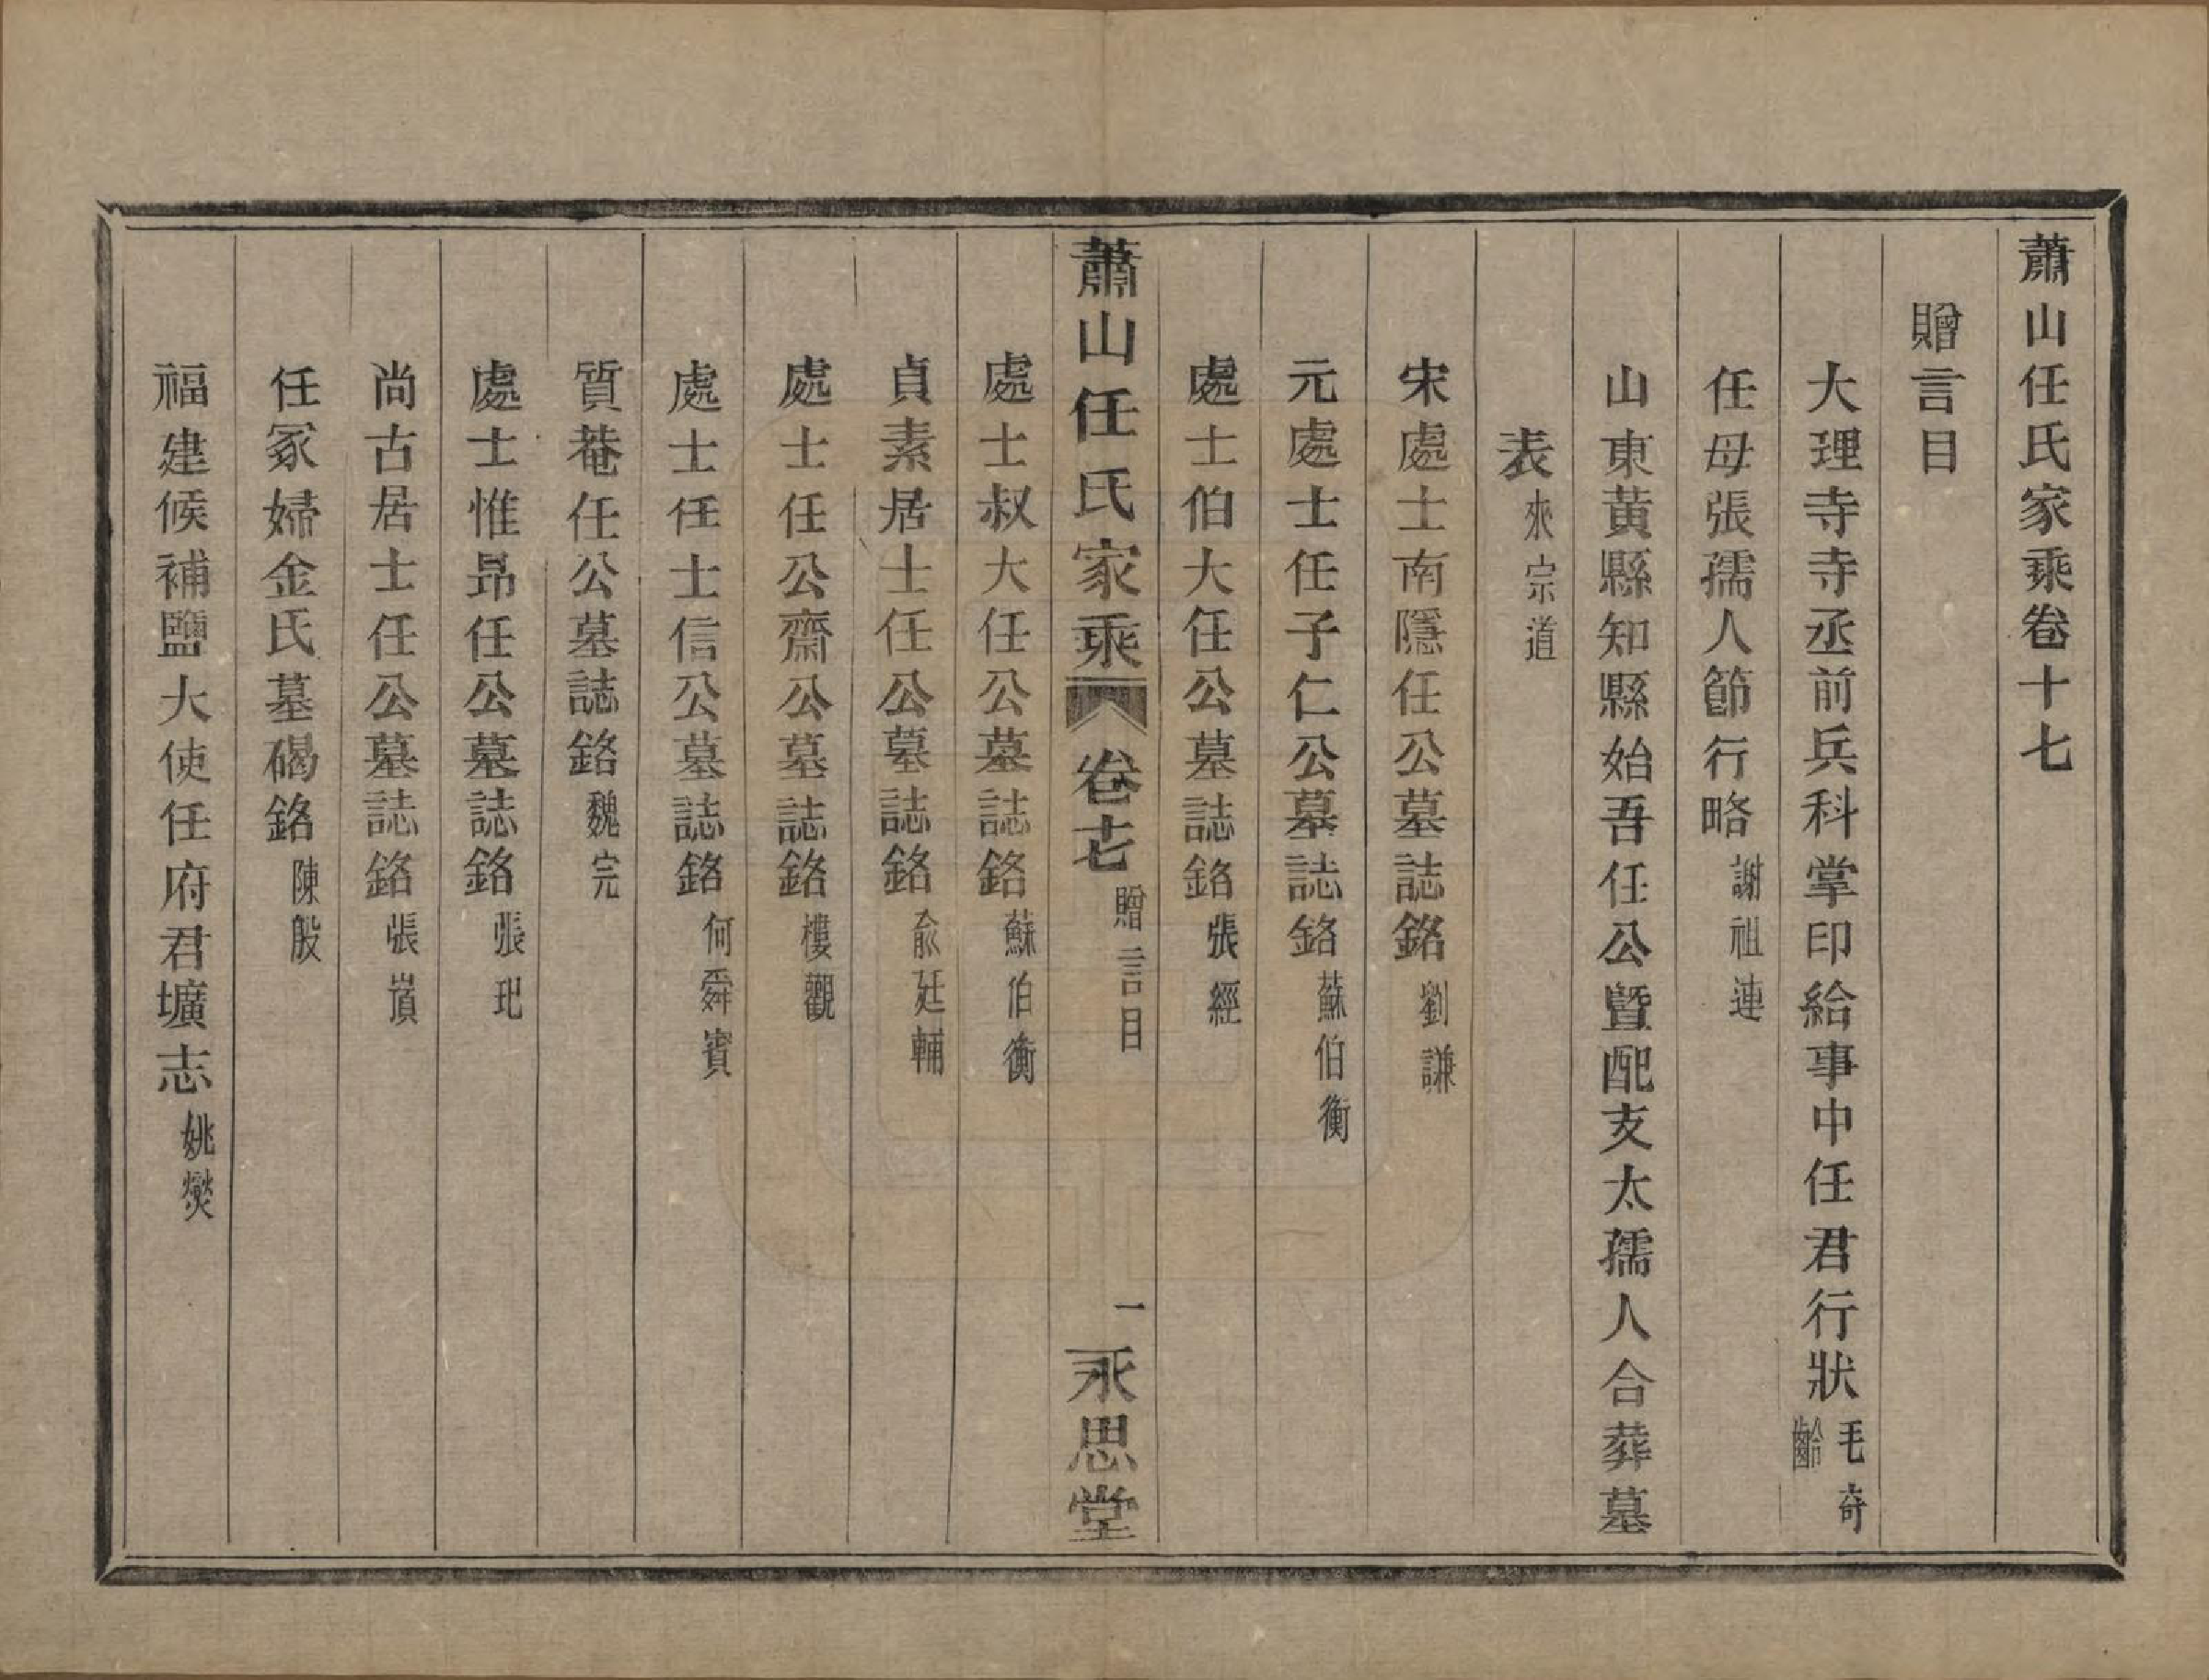 蕭山任氏家乘卷十七
贈言目
大理寺寺丞前兵科掌印給事中任君行狀毛奇齡
任母張孺人節行略謝祖連
山東黃縣知縣始吾任公暨配支太孺人合葬墓
表來宗道
宋處士南隱任公墓誌銘劉謙
元處士任子仁公墓誌銘蘇伯衡
處士伯大任公墓誌銘張經
蕭山任氏家乘 卷十七 贈言目 一 永思堂
處士叔大任公墓誌銘蘇伯衡
貞素居士任公墓誌銘俞廷輔
處士任公齋公墓誌銘樓觀
處士任士信公墓誌銘何舜賓
質菴任公墓誌銘魏完
處士惟昂任公墓誌銘張玭
尚古居士任公墓誌銘張嵿
任冢婦金氏墓碣銘陳殷
福建候補鹽大使任府君壙志姚燮